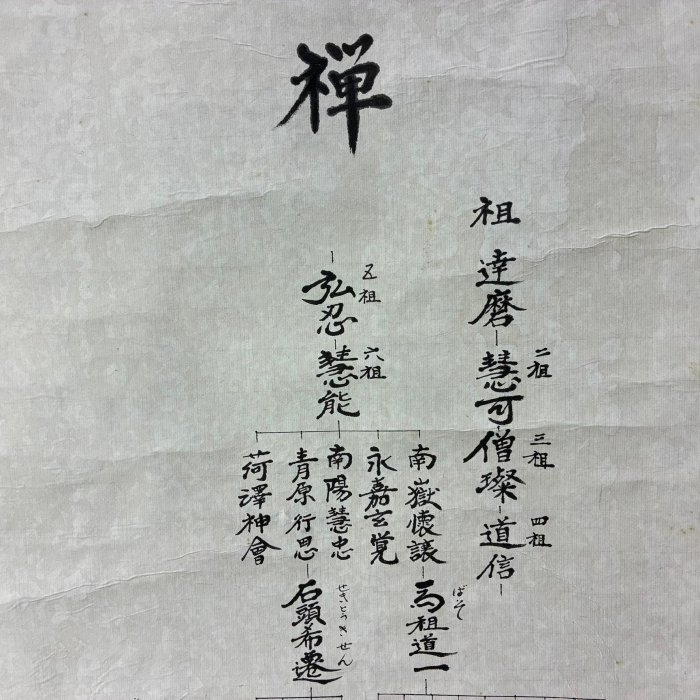 禅
祖
達磨
慧可
二祖
僧璨
三祖
道信
四祖
弘忍
五祖
慧能
六祖
南嶽懐譲
馬祖道一
ばそ
永嘉玄覚
南陽慧忠
青原行思
石頭希遷
せきとうきせん
荷澤神會